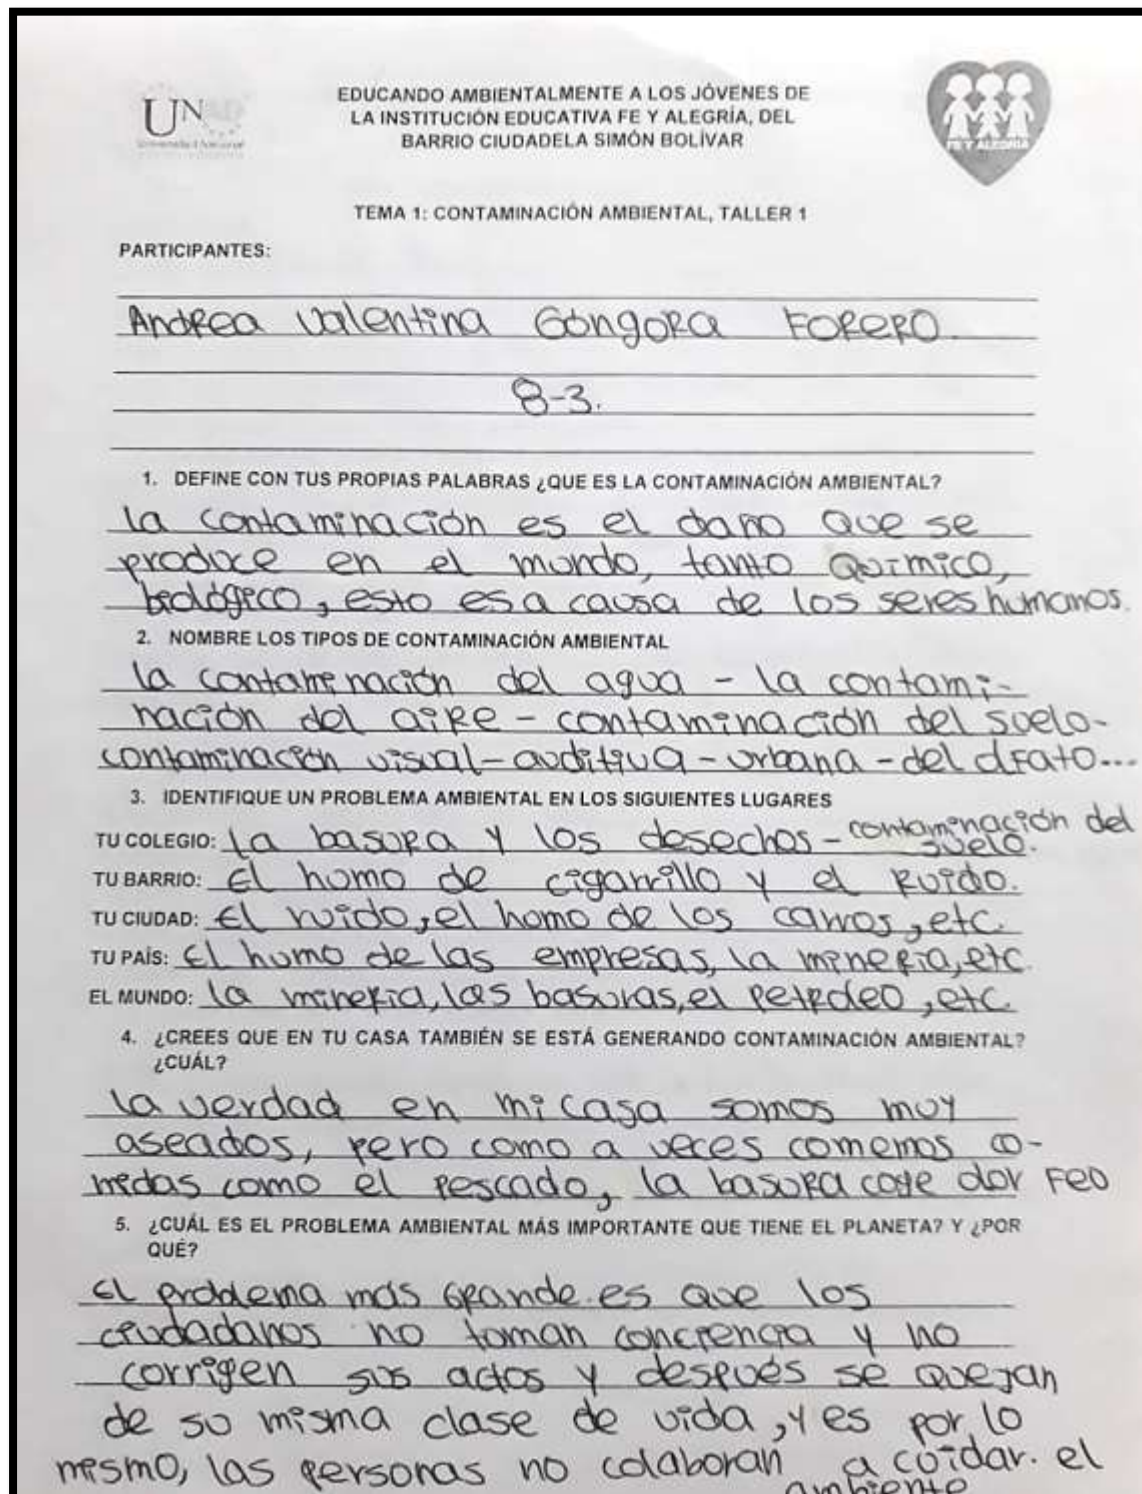 UNAD
EDUCANDO AMBIENTALMENTE A LOS JÓVENES DE
LA INSTITUCIÓN EDUCATIVA FE Y ALEGRÍA, DEL
BARRIO CIUDADELA SIMÓN BOLÍVAR
FE Y ALEGRIA
TEMA 1: CONTAMINACIÓN AMBIENTAL, TALLER 1
PARTICIPANTES:
Andrea Valentina Góngora Forero.
8-3.
1. DEFINE CON TUS PROPIAS PALABRAS ¿QUE ES LA CONTAMINACIÓN AMBIENTAL?
la contaminación es el daño que se
produce en el mundo, tanto químico,
biológico, esto es a causa de los seres humanos.
2. NOMBRE LOS TIPOS DE CONTAMINACIÓN AMBIENTAL
la contaminación del agua - la contami-
nación del aire - contaminación del suelo-
contaminación visual - auditiva - urbana - del olfato...
3. IDENTIFIQUE UN PROBLEMA AMBIENTAL EN LOS SIGUIENTES LUGARES
TU COLEGIO: la basura y los desechos - contaminación del
suelo.
TU BARRIO: El humo de cigarrillo y el Ruido.
TU CIUDAD: El ruido, el homo de los carros, etc.
TU PAÍS: El humo de las empresas, la mineria, etc.
EL MUNDO: la mineria, las basuras, el petroleo, etc.
4. ¿CREES QUE EN TU CASA TAMBIÉN SE ESTÁ GENERANDO CONTAMINACIÓN AMBIENTAL?
¿CUÁL?
la verdad en mi casa somos muy
aseados, pero como a veces comemos co-
midas como el pescado, la basura coge olor feo
5. ¿CUÁL ES EL PROBLEMA AMBIENTAL MÁS IMPORTANTE QUE TIENE EL PLANETA? Y ¿POR
QUÉ?
El problema más grande es que los
ciudadanos no toman conciencia y no
corrigen sus actos y después se quejan
de su misma clase de vida, y es por lo
mismo, las personas no colaboran a cuidar el
ambiente